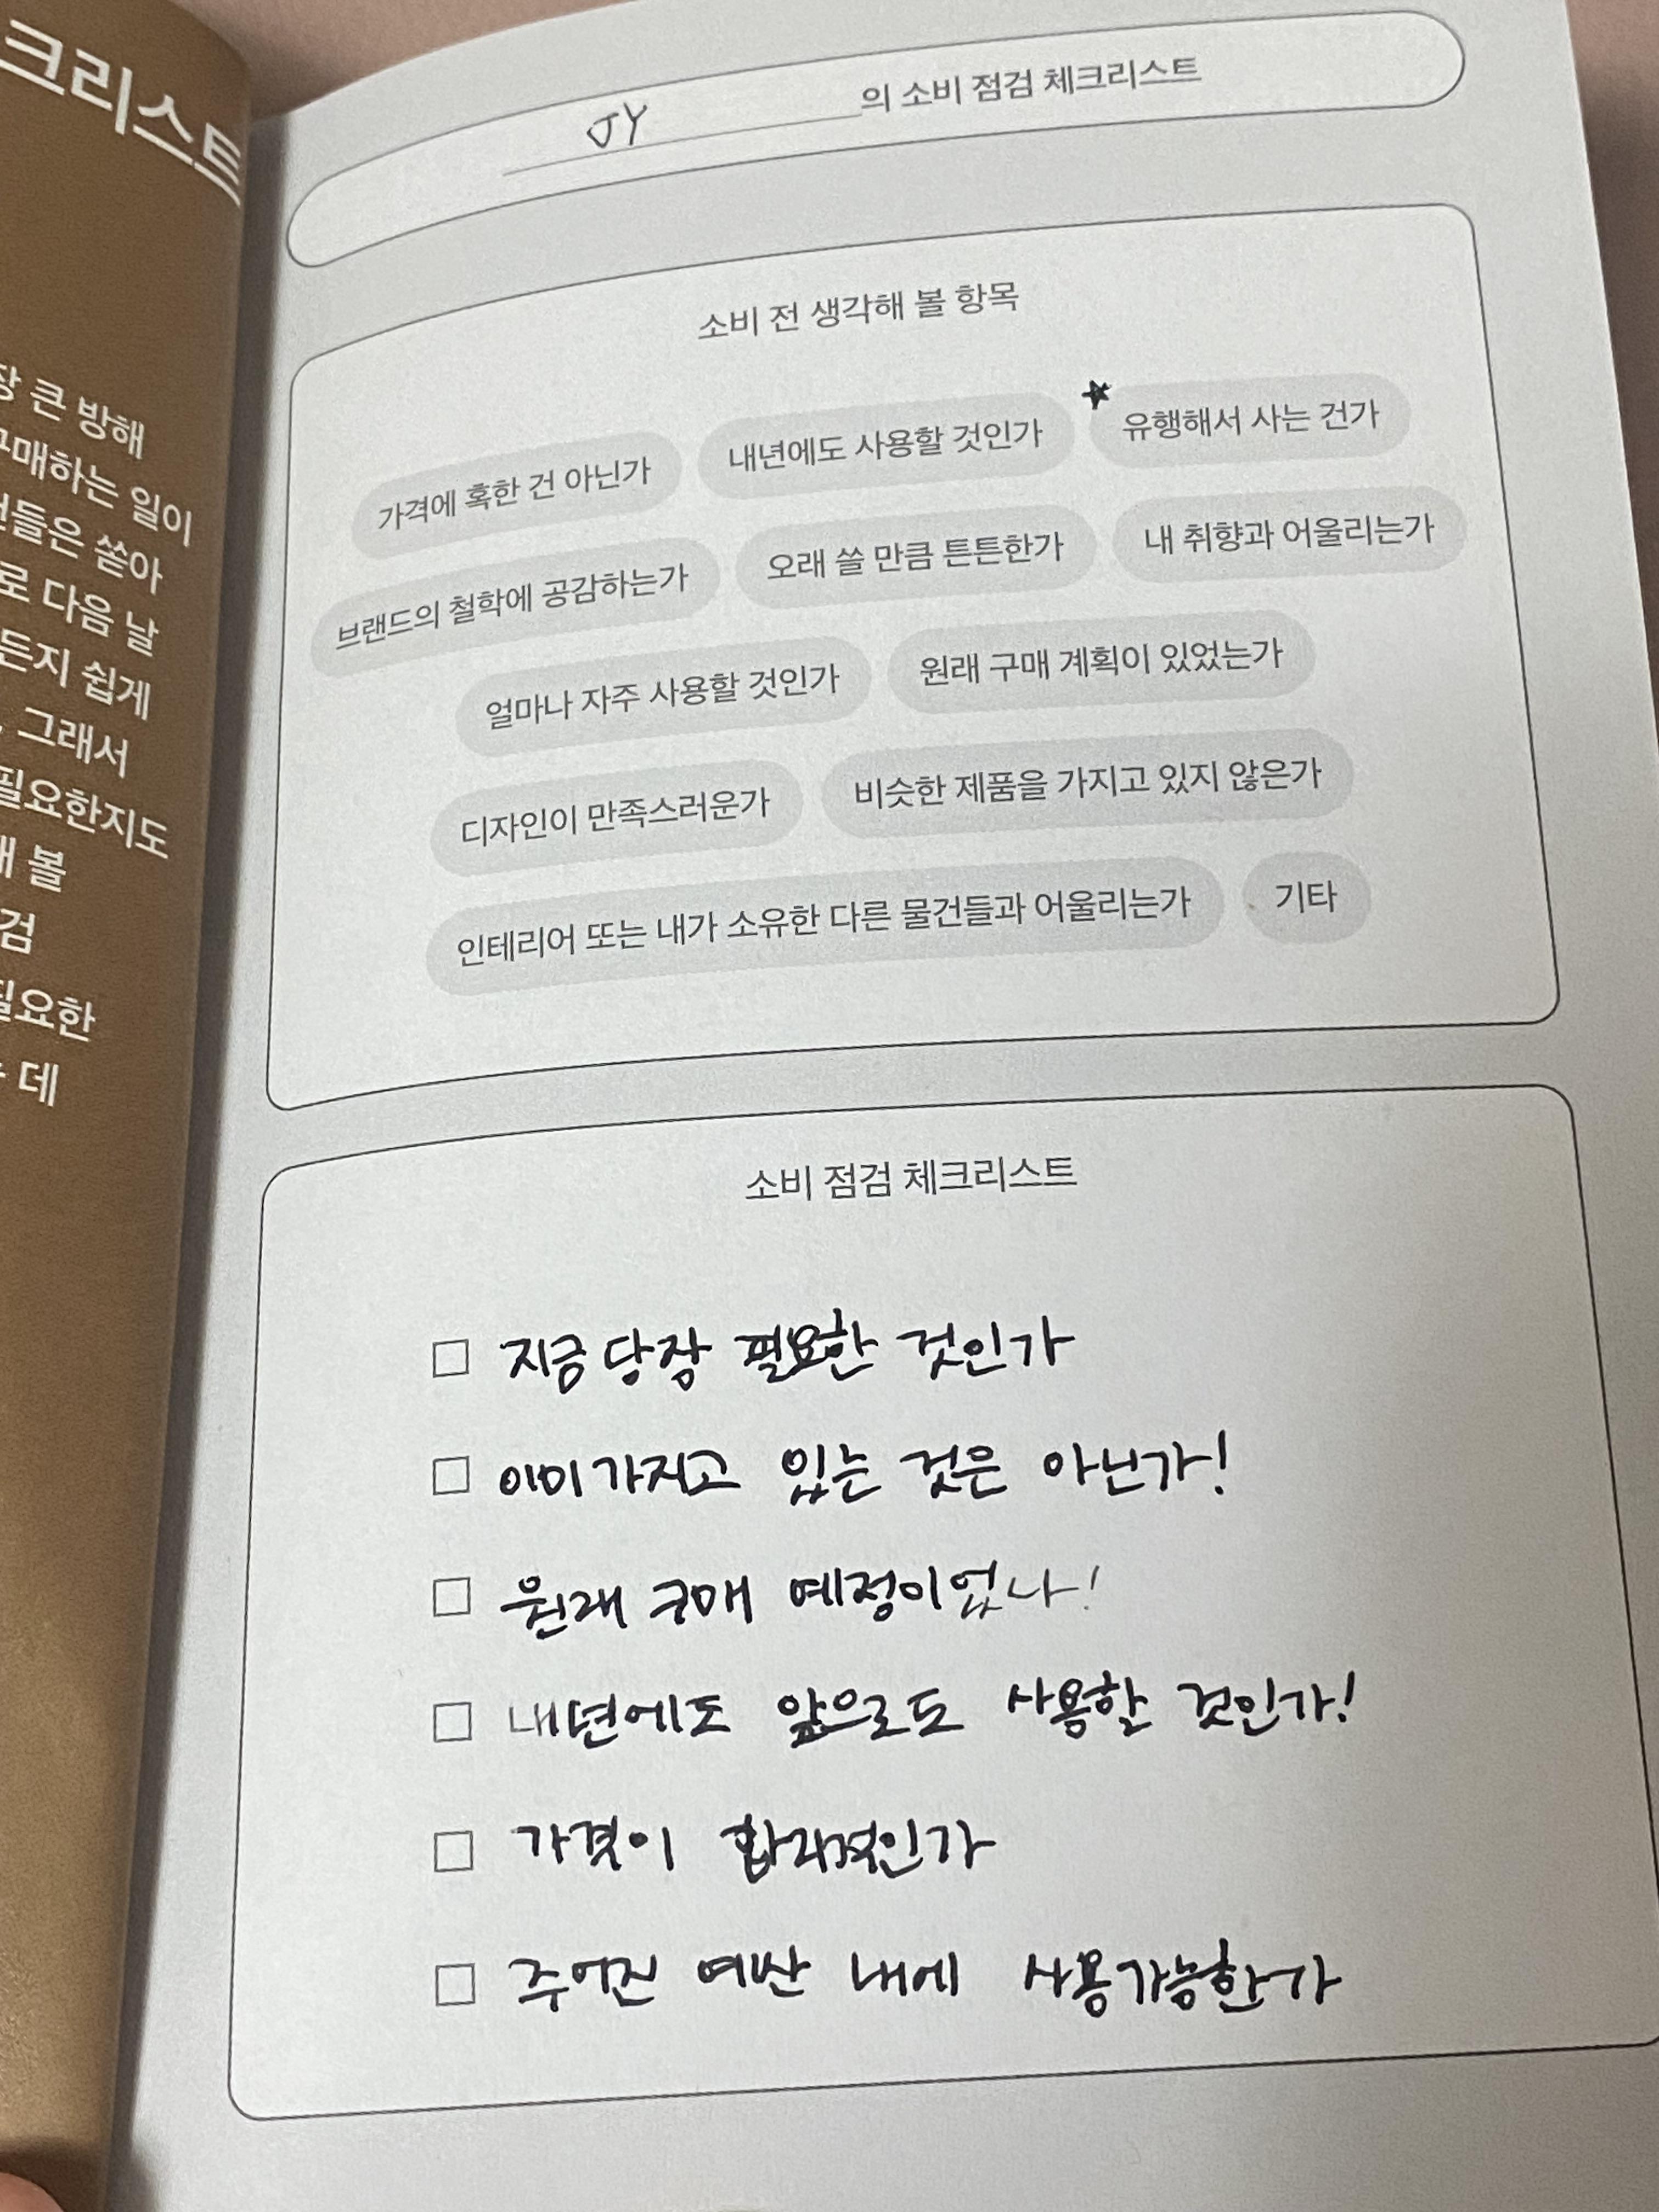 크리스트
장 큰 방해
구매하는 일이
건들은 쏟아
로 다음 날
든지 쉽게
그래서
필요한지도
해 볼
검
필요한
데
JY 의 소비 점검 체크리스트
소비 전 생각해 볼 항목
가격에 혹한 건 아닌가 내년에도 사용할 것인가 ★ 유행해서 사는 건가
브랜드의 철학에 공감하는가 오래 쓸 만큼 튼튼한가 내 취향과 어울리는가
얼마나 자주 사용할 것인가 원래 구매 계획이 있었는가
디자인이 만족스러운가 비슷한 제품을 가지고 있지 않은가
인테리어 또는 내가 소유한 다른 물건들과 어울리는가 기타
소비 점검 체크리스트
□ 지금 당장 필요한 것인가
□ 이미 가지고 있는 것은 아닌가!
□ 원래 구매 예정이었나!
□ 내년에도 앞으로도 사용할 것인가!
□ 가격이 합리적인가
□ 주어진 예산 내에 사용가능한가